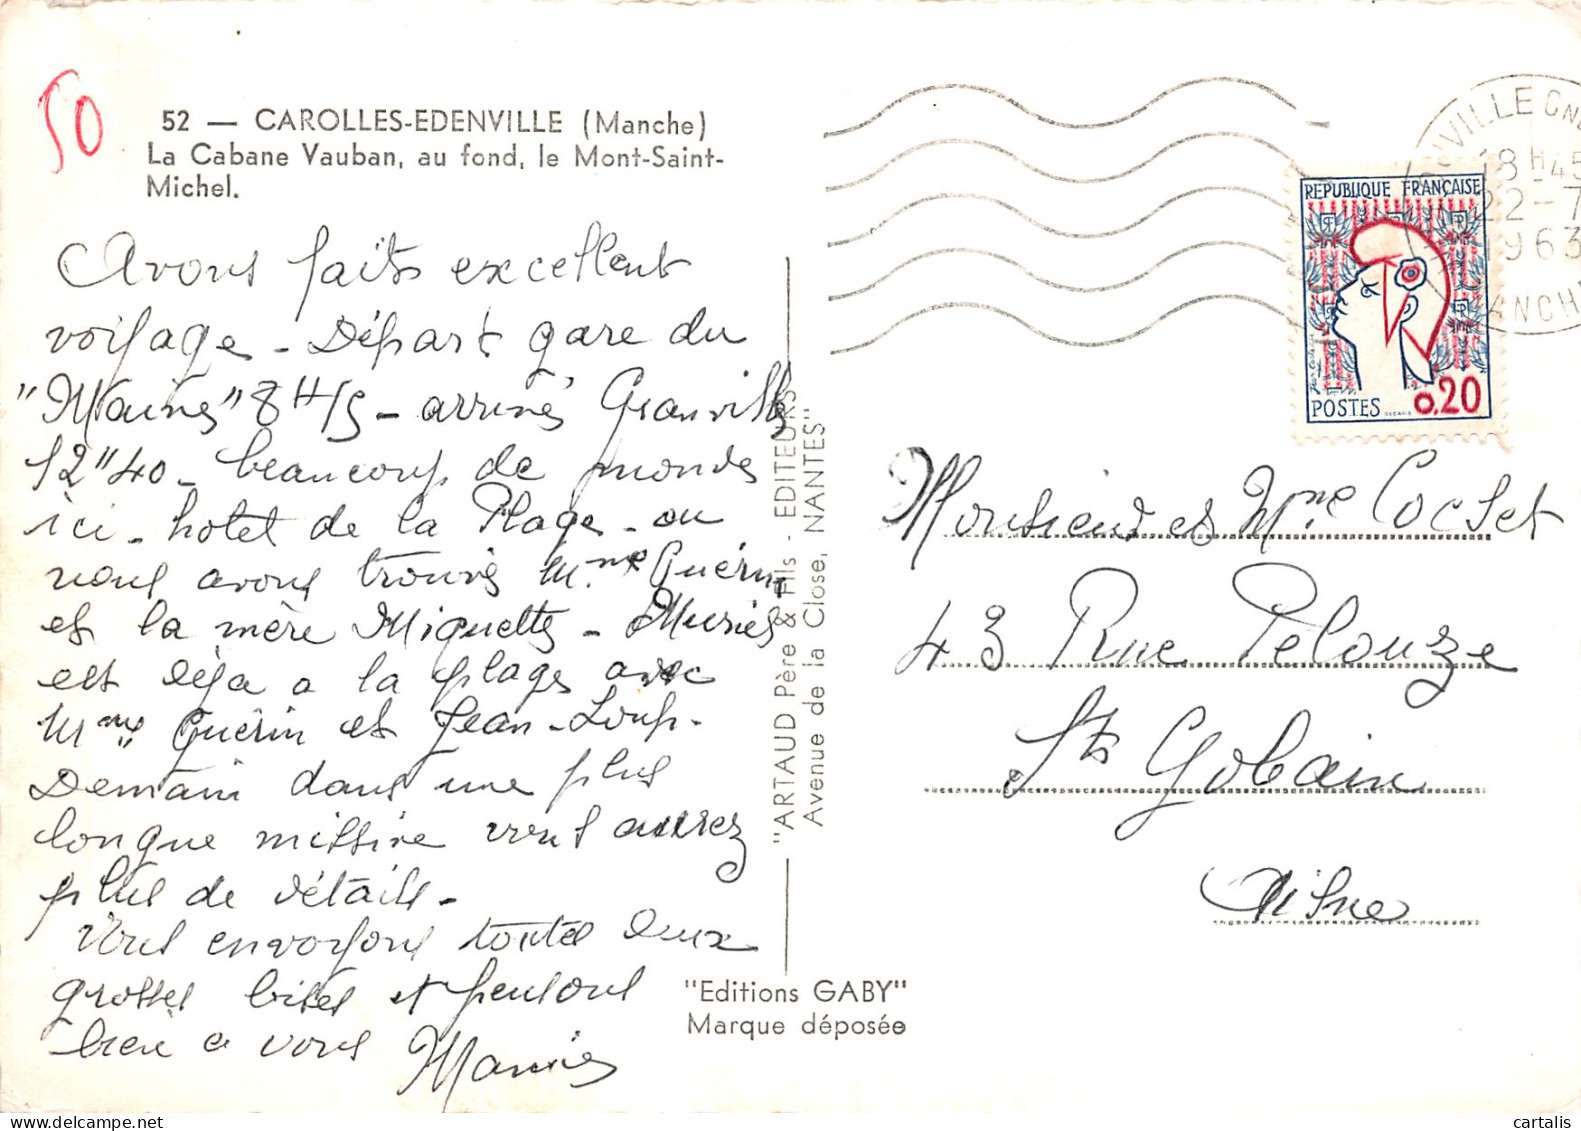 50
52 — CAROLLES-EDENVILLE (Manche)
La Cabane Vauban, au fond, le Mont-Saint-
Michel.
Avons faits excellent
voyage - Départ gare du
"Maine" 8H15 - arrivés Granville
12"40 - beaucoup de monde
ici - hotel de la Plage - ou
nous avons trouvé Mme Guérin
et la mère Miquette -
est déja a la plage avec
Mme Guérin et Jean-Loup -
Demain dans une plus
longue missive vous aurez
plus de détails -
Vous envoyons toutes deux
grosses bises et pensons
bien a vous
"ARTAUD Père & Fils - EDITEURS
Avenue de la Close, NANTES"
"Editions GABY"
Marque déposée
VILLE CNE
18H45
22-7
1963
MANCHE
REPUBLIQUE FRANÇAISE
POSTES 0,20
Monsieur et Mme Cochet
43 Rue Pelouze
St Gobain
Aisne
cartalis